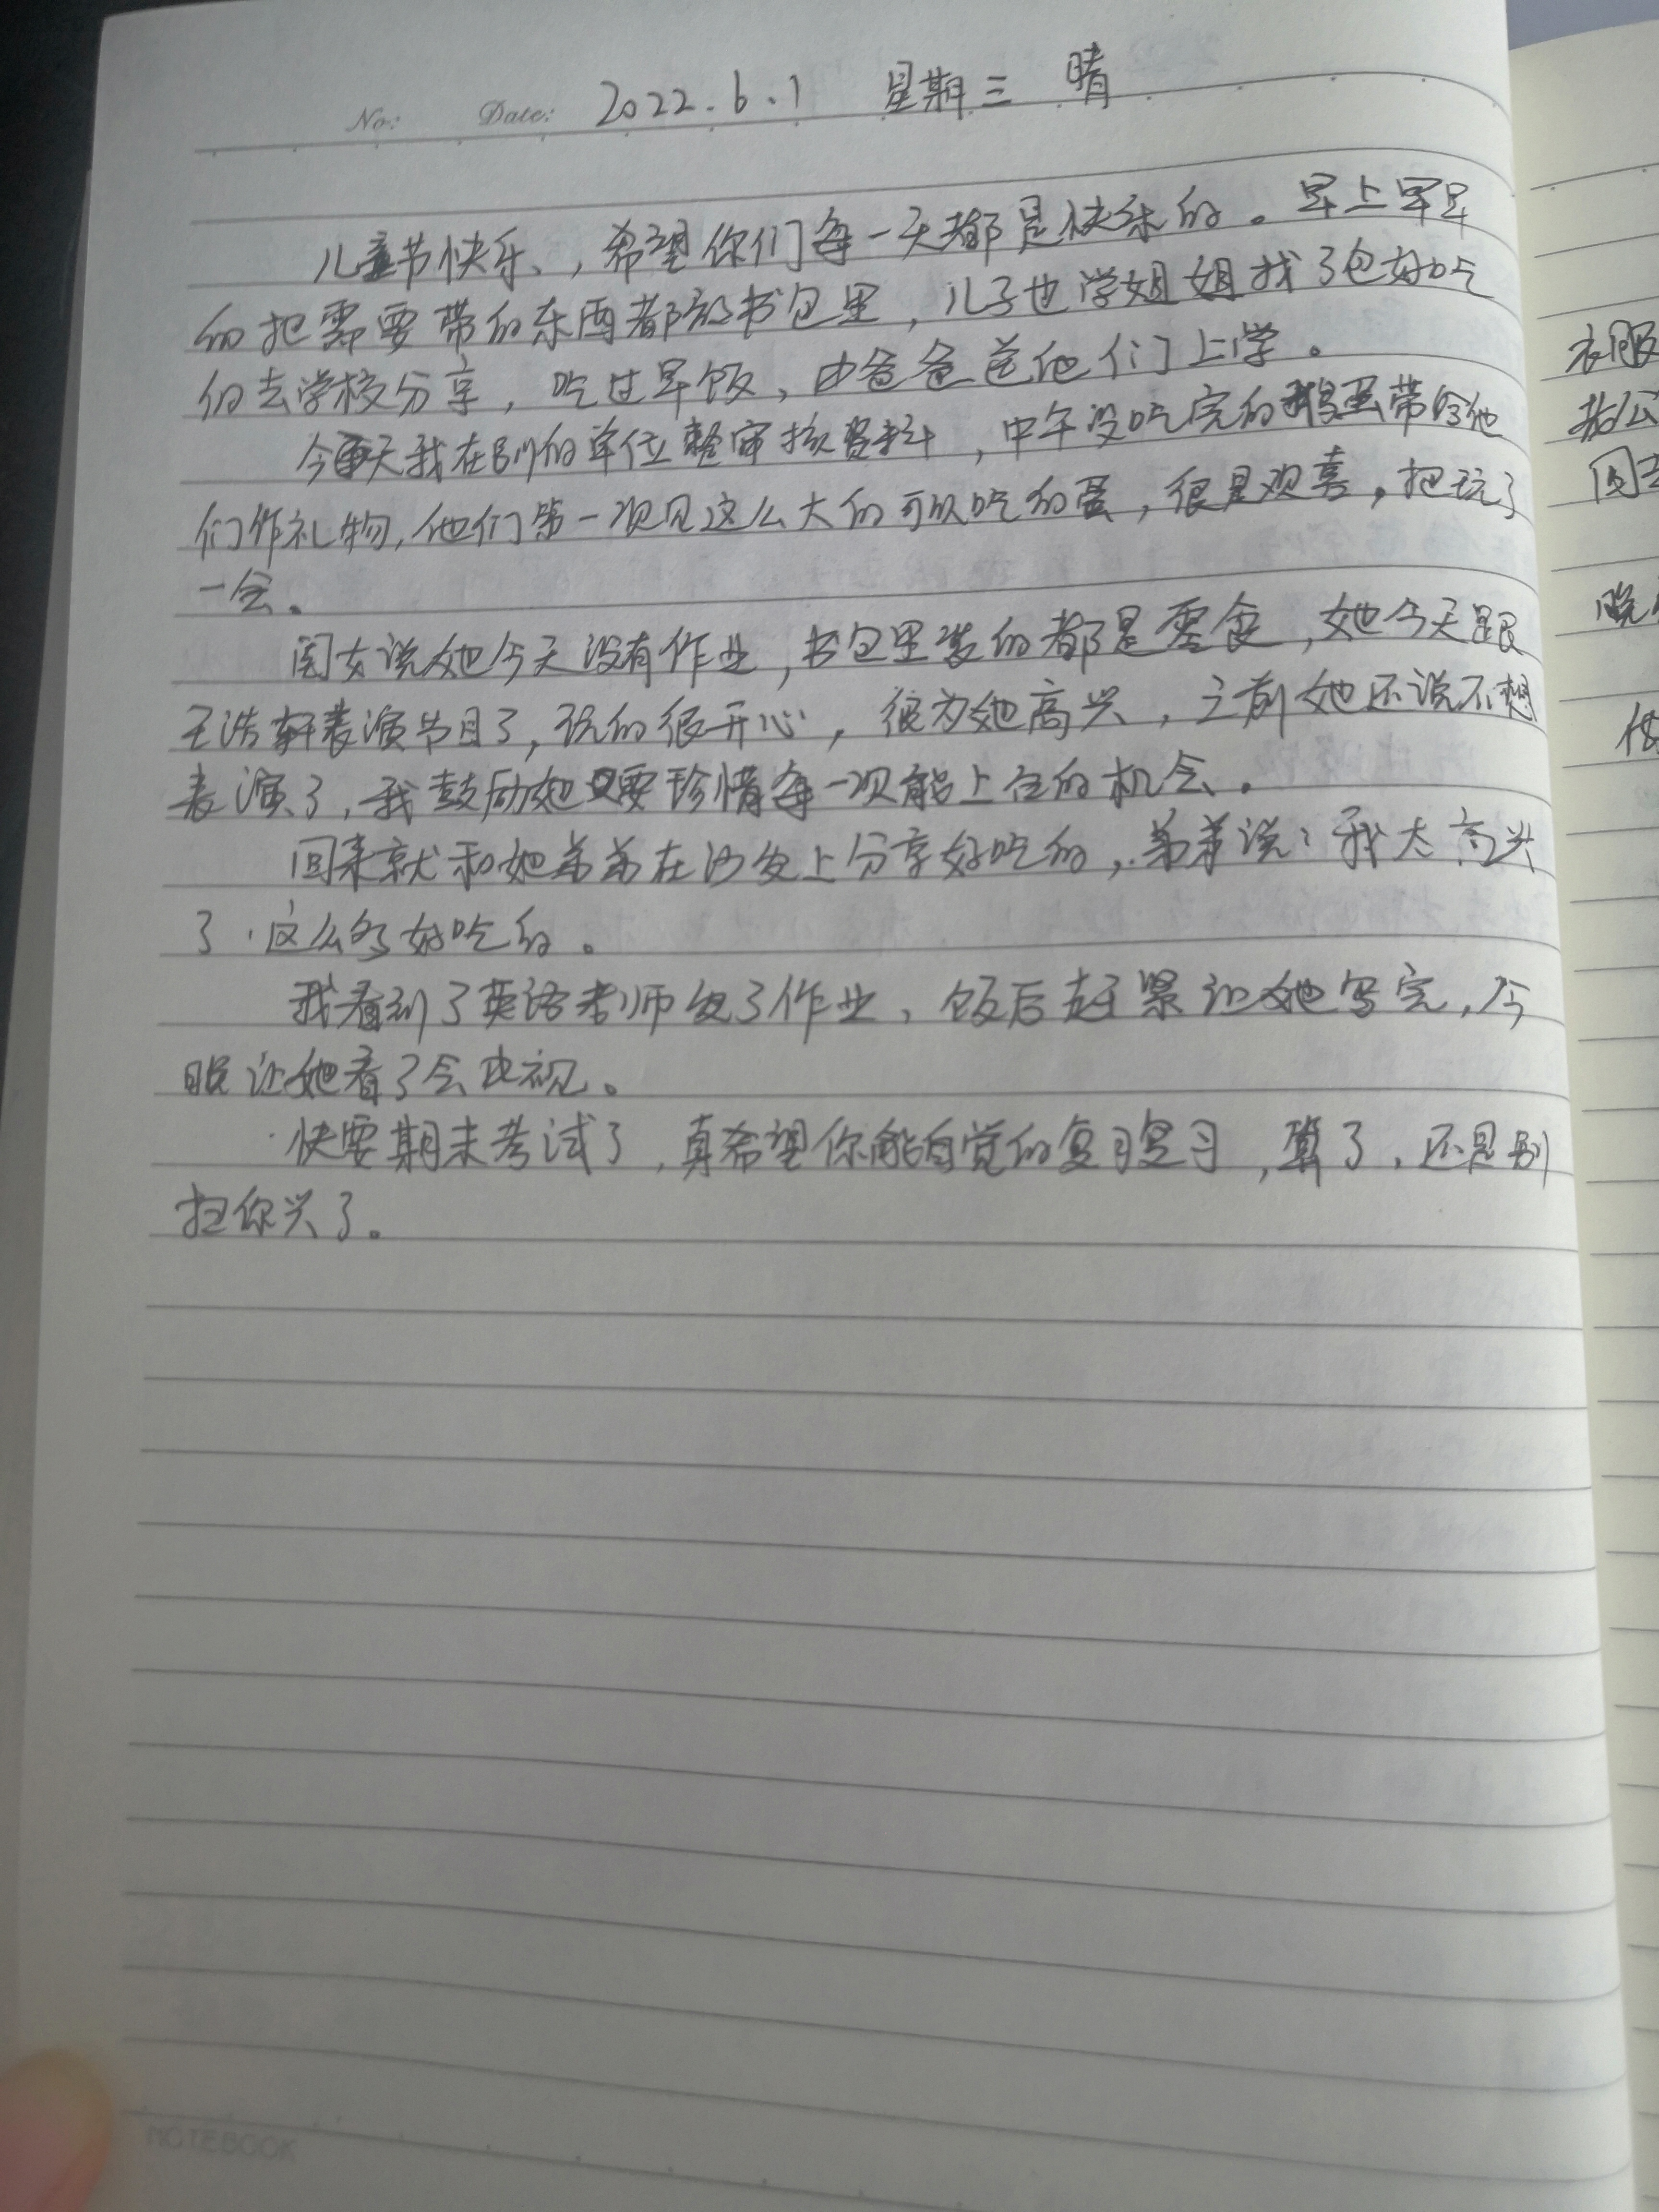 No: Date: 2022.6.1 星期三 晴
儿童节快乐、,希望你们每一天都是快乐的。早上早早
的把需要带的东西都放书包里,儿子也学姐姐找了包好吃
的去学校分享,吃过早饭,由爸爸送他们上学。
今天我在别的单位审核资料,中午没吃完的鹅蛋带给他
们作礼物,他们第一次见这么大的可以吃的蛋,很是观喜,把玩了
一会。
闺女说她今天没有作业,书包里装的都是零食,她今天跟
王浩轩表演节目了,玩的很开心,很为她高兴,之前她还说不想
表演了,我鼓励她要珍惜每一次能上台的机会。
回来就和她弟弟在沙发上分享好吃的,弟弟说:我太高兴
了,这么多好吃的。
我看到了英语老师发了作业,饭后赶紧让她写完,今
晚让她看了会电视。
快要期末考试了,真希望你能自觉的复习复习,算了,还是别
扫你兴了。
NOTEBOOK
衣服
回
晚